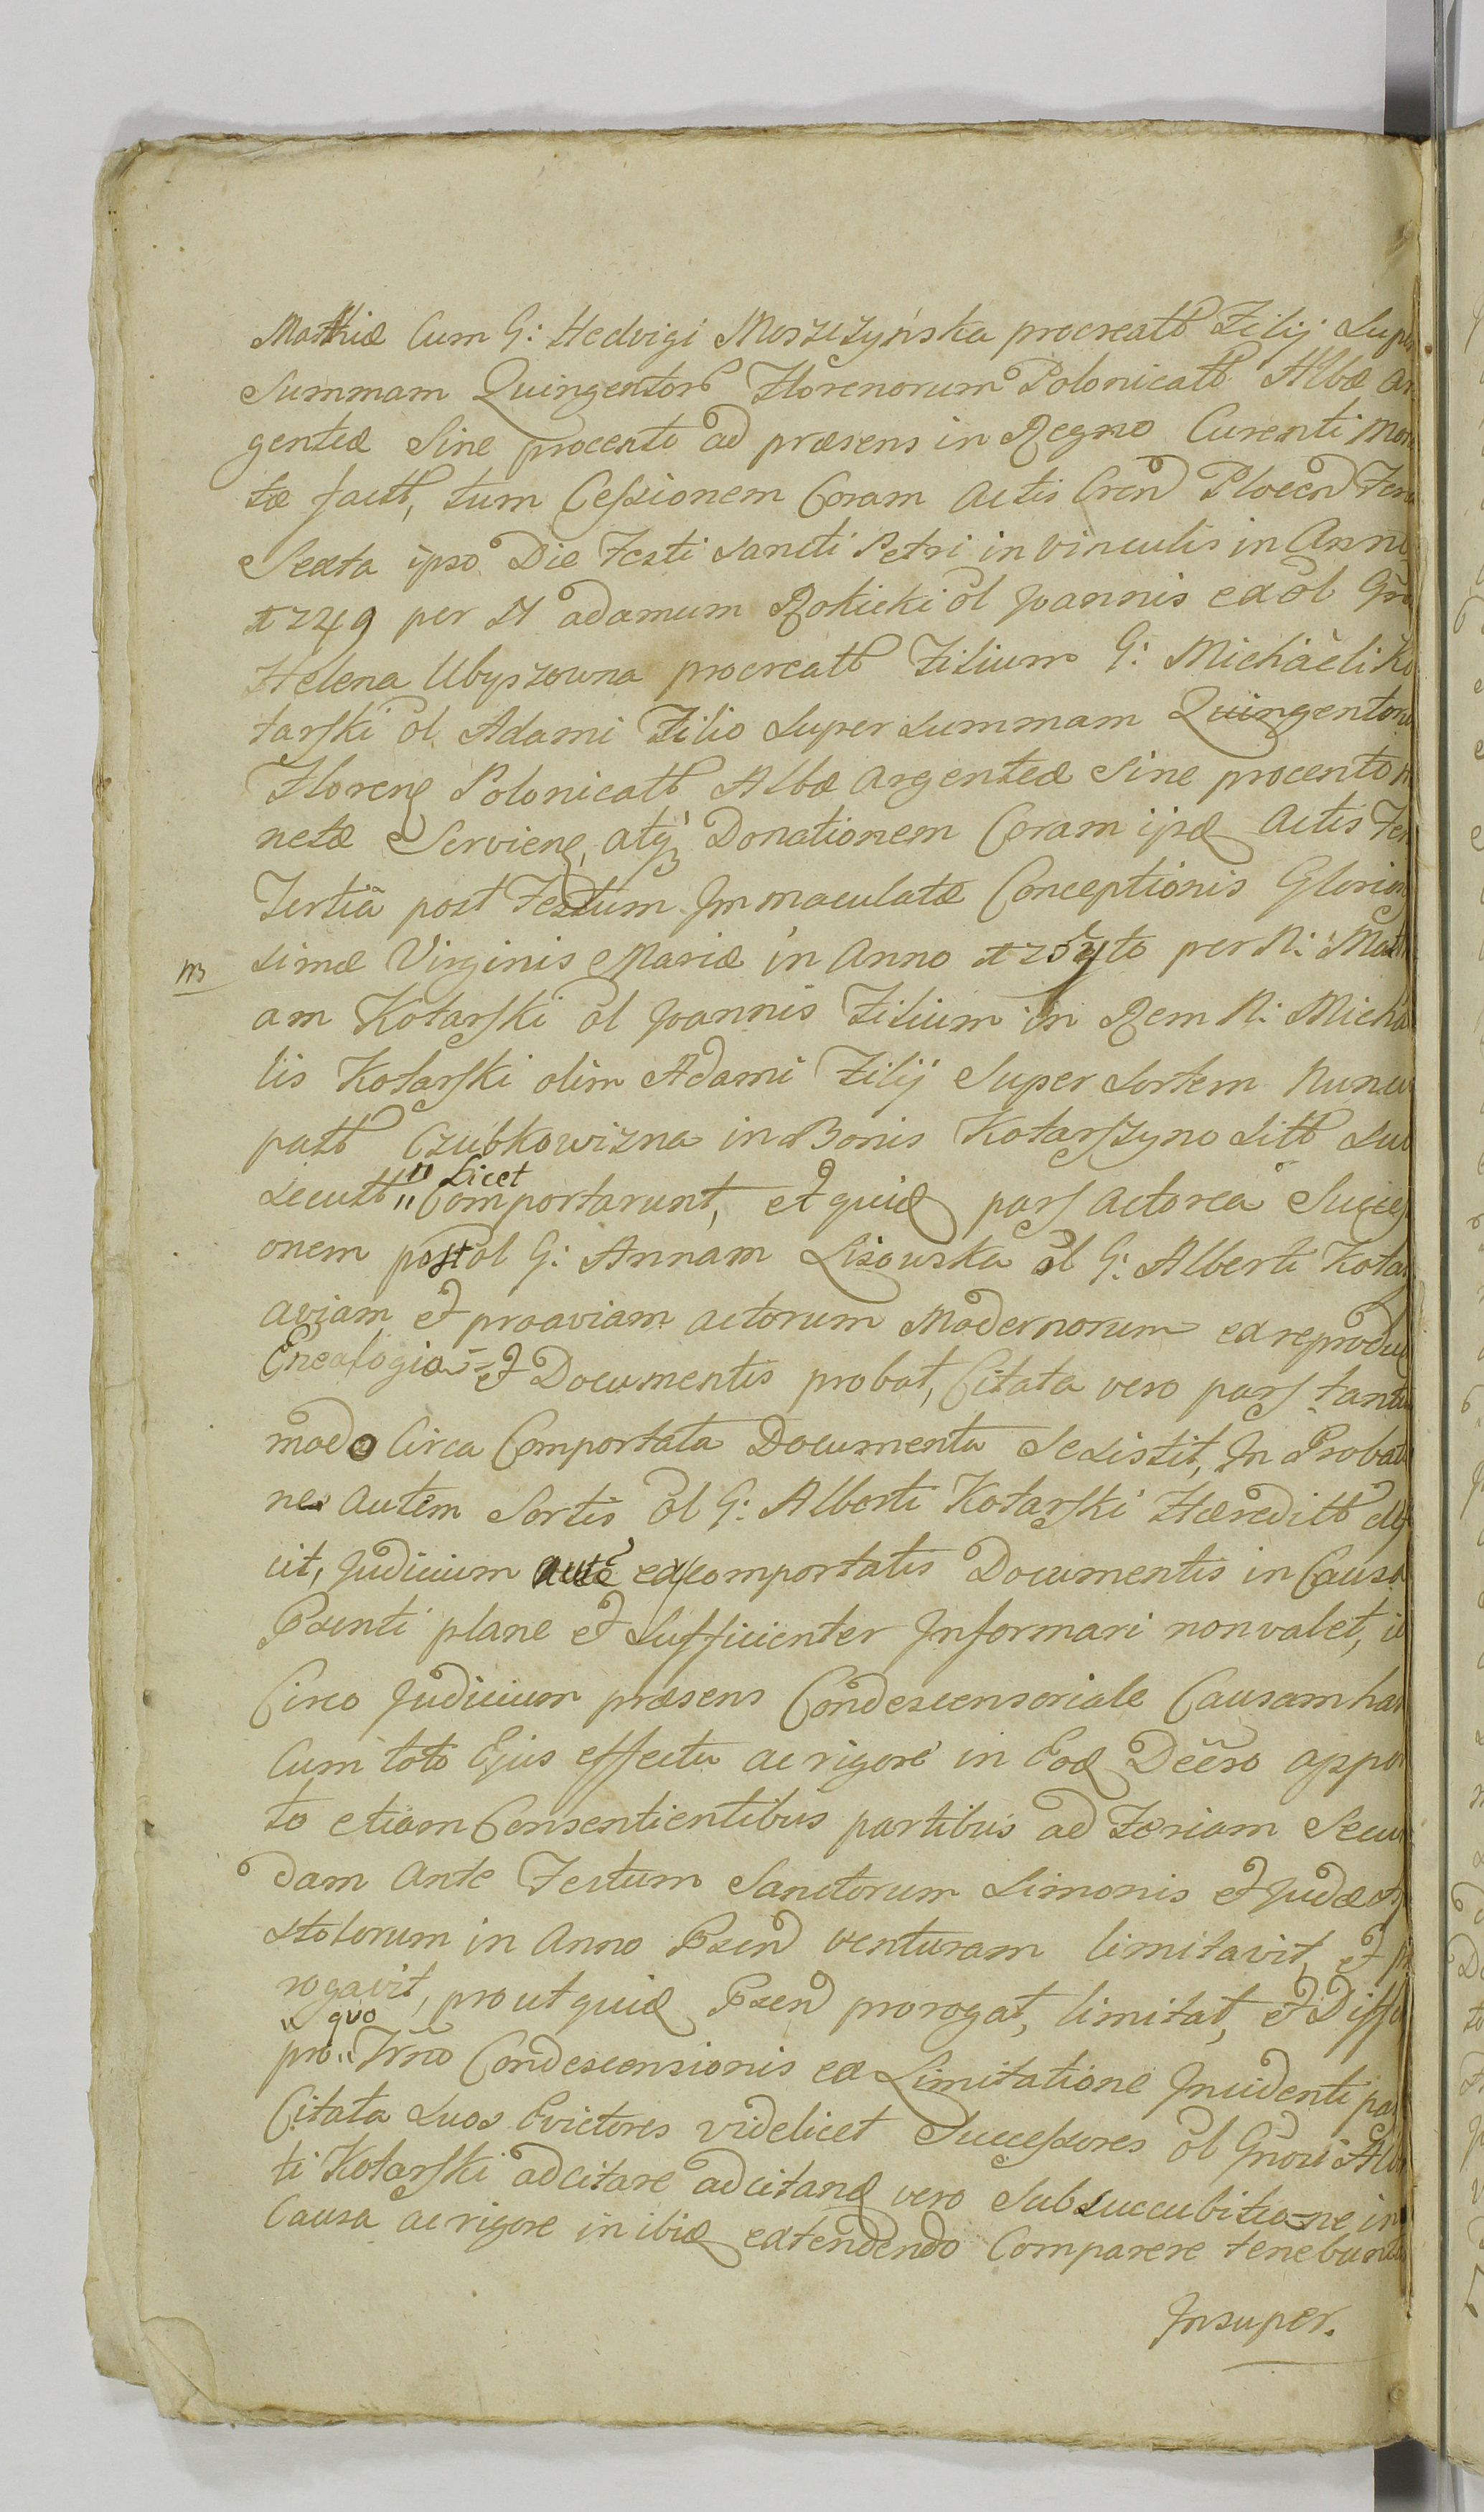 Mathiæ Cum G: Hedvigi Moszczyńska procreatt Filij Super
Summam Quingentor Florenorum Polonicatt Albæ ar
genteæ Sine procenti ad præsens in Regno Curenti Mone
tæ factt, tum Cessionem Coram Actis Cren Plocen Feria
Sexta ipso Die Festi Sancti Petri in vinculis in Anno
1749 per N adamum Rokicki ol Joannis ex ol Gna
Helena Ubyszowna procreatt Filium G: Michaeli Ko
tarski ol Adami Filio Super Summam Quingentoru
Floren Polonicatt Albæ argenteæ Sine procento mo
netæ Servien, atq Donationem Coram ijsd Actis Fer
Tertia post Festum Immaculatæ Conceptionis Glorios
simæ Virginis Mariæ in Anno per N: Math
m
am Kotarski ol Joannis Filium in Rem N: Micha
lis Kotarski olim Adami Filij Super Sortem Nuncu
patt Czubkowizna in Bonis Kotarszyno Sitt Sub
Licet
Secutt "Comportarunt, et quid pars actorea Succes
onem post ol G: Annam Lisowska ol G: Alberti Kotar
aviam et proaviam actorum Modernorum ex reproduc
Enealogia et Documentis probat, Citata vero pars tantu
modo Circa Comportata Documenta Se Sistit, In Probatio
ne autem Sortis ol G: Alberti Kotarski Hæreditt
cit, Judicium autē ex comportatis Documentis in Causa
Psenti plane et Sufficienter Informari non valet, id
Circo Judicium præsens Condescensoriale Causam han
Cum toto Ejus effectu ac rigore in Eod Decro appor
to etiam Consentientibus partibus ad Feriam Secun
dam ante Festum Sanctorum Simonis et Judæ
stolorum in Anno Psen venturam limitavit, et p
rogavit, prout quid Psen prorogat, limitat, et Diffe
" quo
pro " Trno Condescensionis ex Limitatione Incidenti pars
Citata Suos Evictores videlicet Successores ol Gnosi Alber
ti Kotarski adcitare adcitand vero Sub Succubitione in
Causa ac rigore in ibid extendendo Comparere tenebunt
Insuper.